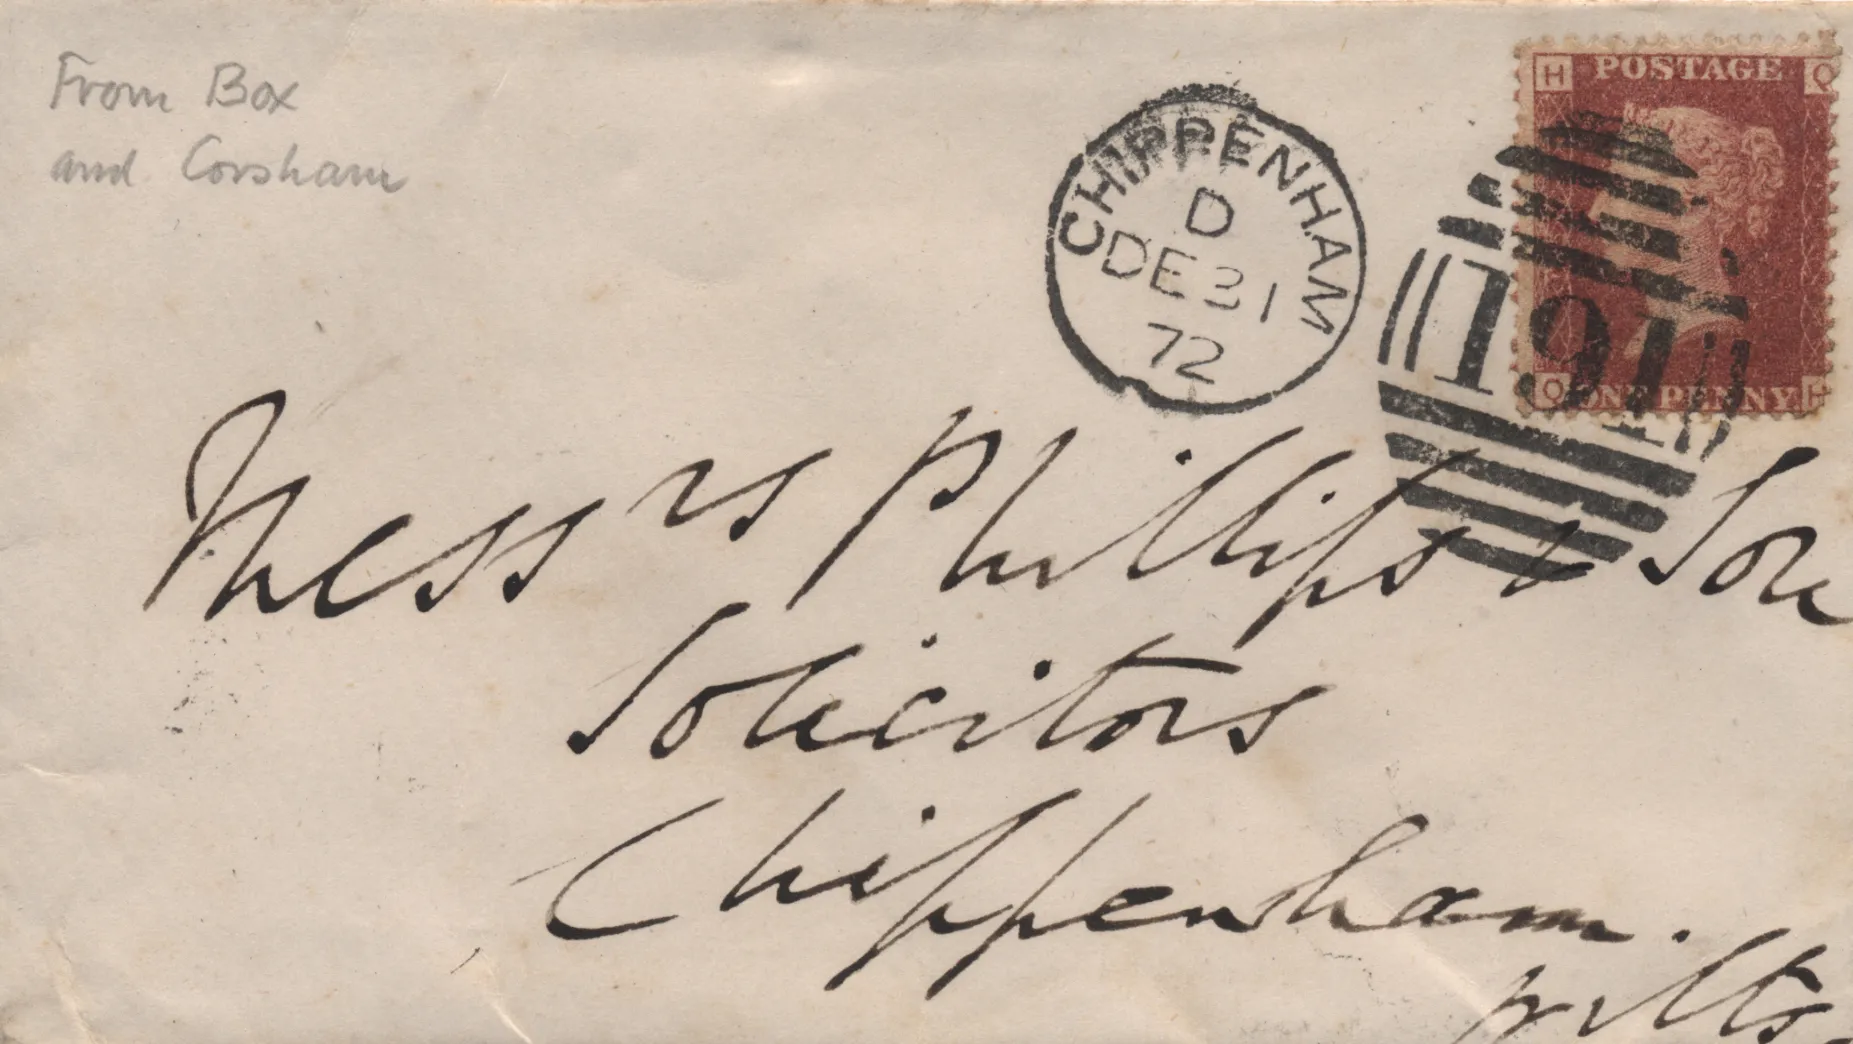 From Box
and Corsham
CHIPPENHAM
D
DE 31
72
H POSTAGE Q
191
Q ONE PENNY H
Mess rs Phillips & Son
Solicitors
Chippenham.
Wilts.